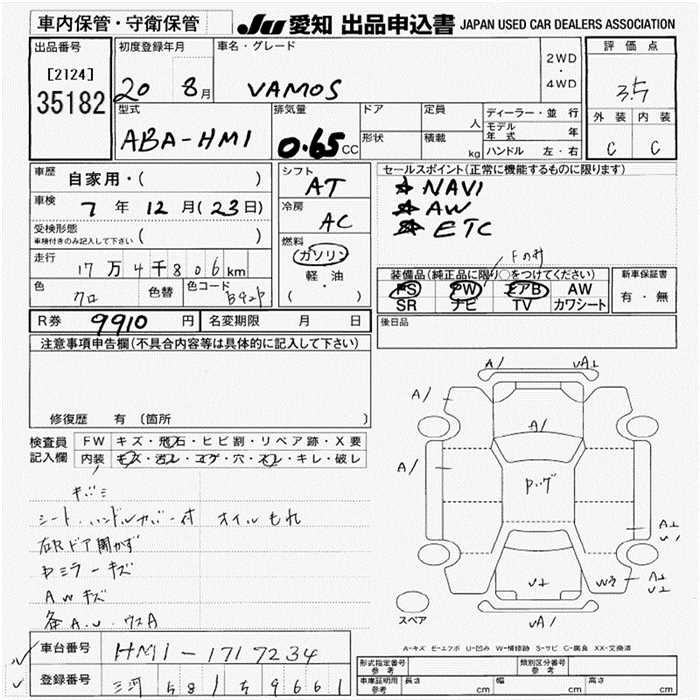 車内保管・守衛保管
JU 愛知 出品申込書 JAPAN USED CAR DEALERS ASSOCIATION
出品番号
[2124]
35182
初度登録年月
20 8月
車名・グレード
VAMOS
2WD
・
4WD
評価点
3.5
外装 内装
C C
型式
ABA-HM1
排気量
0.65 CC
ドア
形状
定員
人
積載
kg
ディーラー・並行
モデル年式 年
ハンドル 左・右
車歴
自家用・( )
車検
7年 12月 (23日)
受検形態
車検付きのみ記入して下さい ( )
走行
17万4千806km
色
クロ
色替
色コード
B92P
シフト
AT
冷房
AC
燃料
ガソリン
軽・油
( ・ )
セールスポイント(正常に機能するものに限ります)
☆ NAVI
☆ AW
☆ ETC
Fのみ
装備品(純正品に限り○をつけてください)
PS PW エアB AW
SR ナビ TV カワシート
新車保証書
有・無
R券 9910円
名変期限 月 日
後日品
注意事項申告欄(不具合内容等は具体的に記入して下さい)
修復歴 有 (箇所 )
検査員記入欄
FW キズ・飛石・ヒビ割・リペア跡・X要
内装 キズ・汚レ・コゲ・穴・スレ・キレ・破レ
キバミ
シート・ハンドルカバー付 オイルもれ
右Rドア開かず
Dミラーキズ
AWキズ
A1
UA⊥
A1
A1
A1
P.ッグ
A⊥
U1
U⊥
W3
A⊥
U⊥
UA1
スペア
A-キズ E-エクボ U-凹み W-補修跡 S-サビ C-腐食 XX-交換済
車台番号
HM1-1717234
登録番号
三河 581 ち 9661
形式指定番号
参考
類別区分番号
参考
車庫証明用
参考
長さ cm
幅 cm
高さ cm